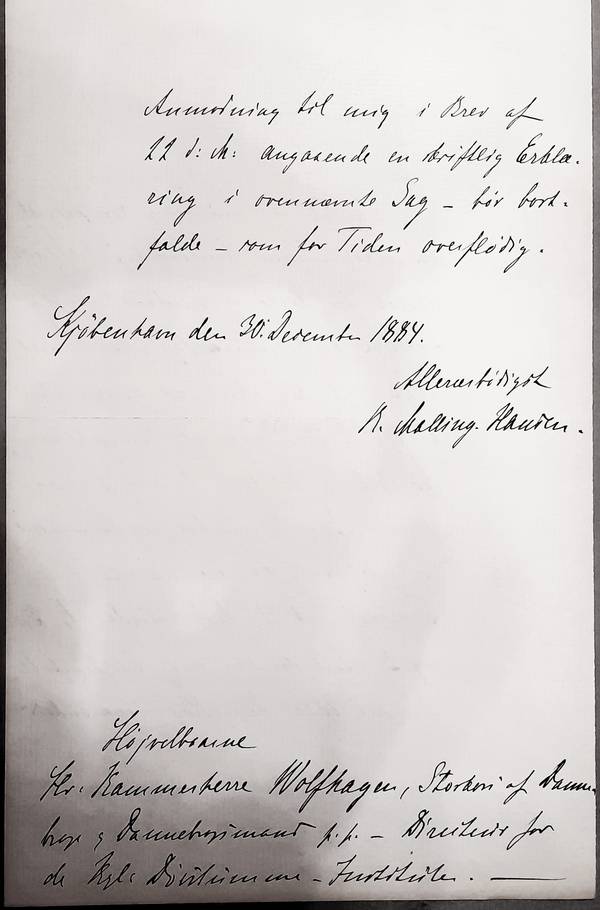 Anmodning til mig i Brev af
22 d: M: angaaende en skriftlig Erklæ-
ring i ovennævnte Sag – bør bort-
falde – som for Tiden overflødig.
Kjöbenhavn den 30. December 1884.
Allerærbödigst
R. Malling-Hansen.
Højvelbaarne
Hr. Kammerherre Wolfhagen, Storkors af Danne-
brog og Dannebrogsmand p.p. – Directeur for
de Kgl: Døvstumme-Instituter.